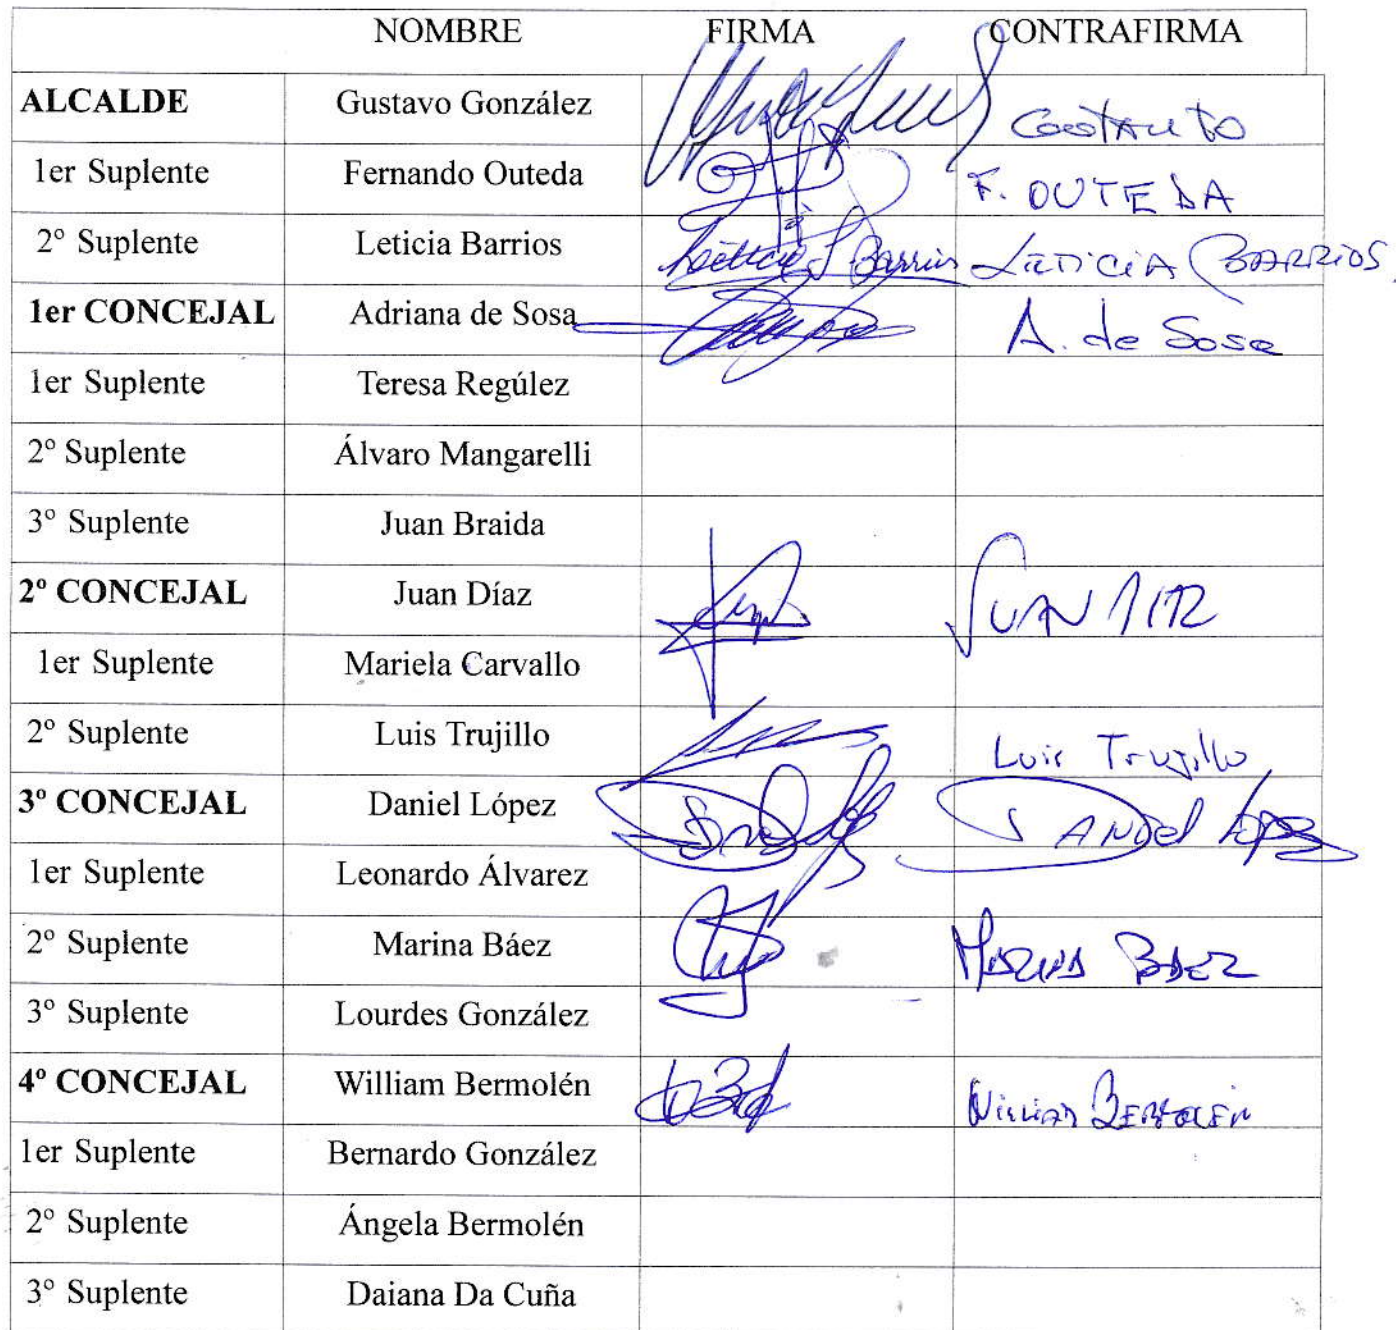 NOMBRE FIRMA CONTRAFIRMA
ALCALDE Gustavo González
1er Suplente Fernando Outeda F. OUTEDA
2º Suplente Leticia Barrios Leticia S Barrios LETICIA BARRIOS.
1er CONCEJAL Adriana de Sosa A. de Sosa
1er Suplente Teresa Regúlez
2º Suplente Álvaro Mangarelli
3º Suplente Juan Braida
2º CONCEJAL Juan Díaz JUAN
1er Suplente Mariela Carvallo
2º Suplente Luis Trujillo Luis Trujillo
3º CONCEJAL Daniel López DANIEL López
1er Suplente Leonardo Álvarez
2º Suplente Marina Báez MARINA BAEZ
3º Suplente Lourdes González
4º CONCEJAL William Bermolén William BERMOLEN
1er Suplente Bernardo González
2º Suplente Ángela Bermolén
3º Suplente Daiana Da Cuña